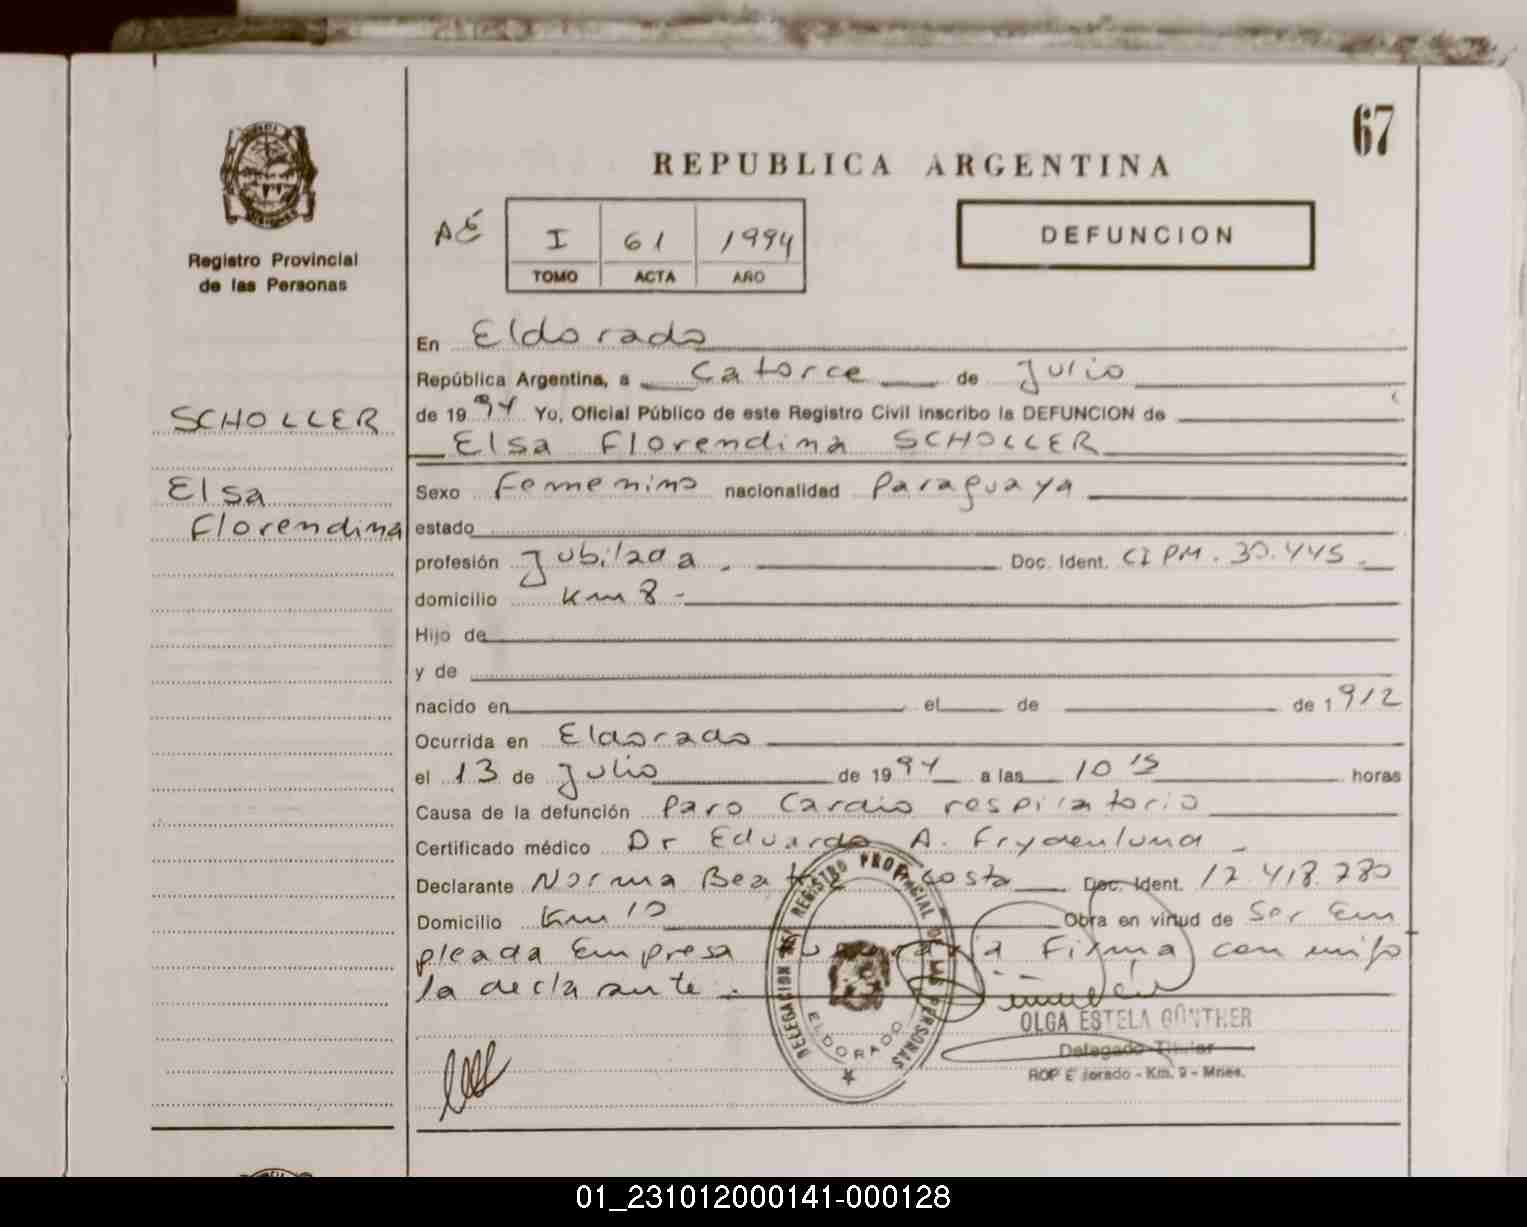 67
REPUBLICA ARGENTINA
AÉ I 61 1994
TOMO ACTA AÑO
DEFUNCION
Registro Provincial
de las Personas
SCHOLLER
Elsa
Florendina
En Eldorado
República Argentina, a Catorce de Julio
de 1994 Yo, Oficial Público de este Registro Civil inscribo la DEFUNCION de
Elsa Florendina SCHOLLER
Sexo Femenino nacionalidad Paraguaya
estado
profesión Jubilada. Doc. Ident. CI PM. 30.445.
domicilio Km 8-
Hijo de
y de
nacido en el de de 1912
Ocurrida en Eldorado
el 13 de Julio de 1994 a las 10'5 horas
Causa de la defunción Paro Cardio respiratorio
Certificado médico Dr Eduardo A. Frydenlund
Declarante Norma Beatriz Costa Doc. Ident. 12.418.280
Domicilio Km 10 Obra en virtud de Ser Em
pleada Empresa Firma con migo
la declarante.
DELEGACION DEL REGISTRO PROVINCIAL DE LAS PERSONAS
ELDORADO
OLGA ESTELA GÜNTHER
Delegado Titular
RDP Eldorado - Km. 9 - Mnes.
01_231012000141-000128